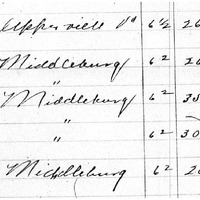 Upperville Va 6 ½ 26
Middleburg 6 2 26
" 
Middleburg 6 2 38
" 6 2 30
Middleburg 6 2 26